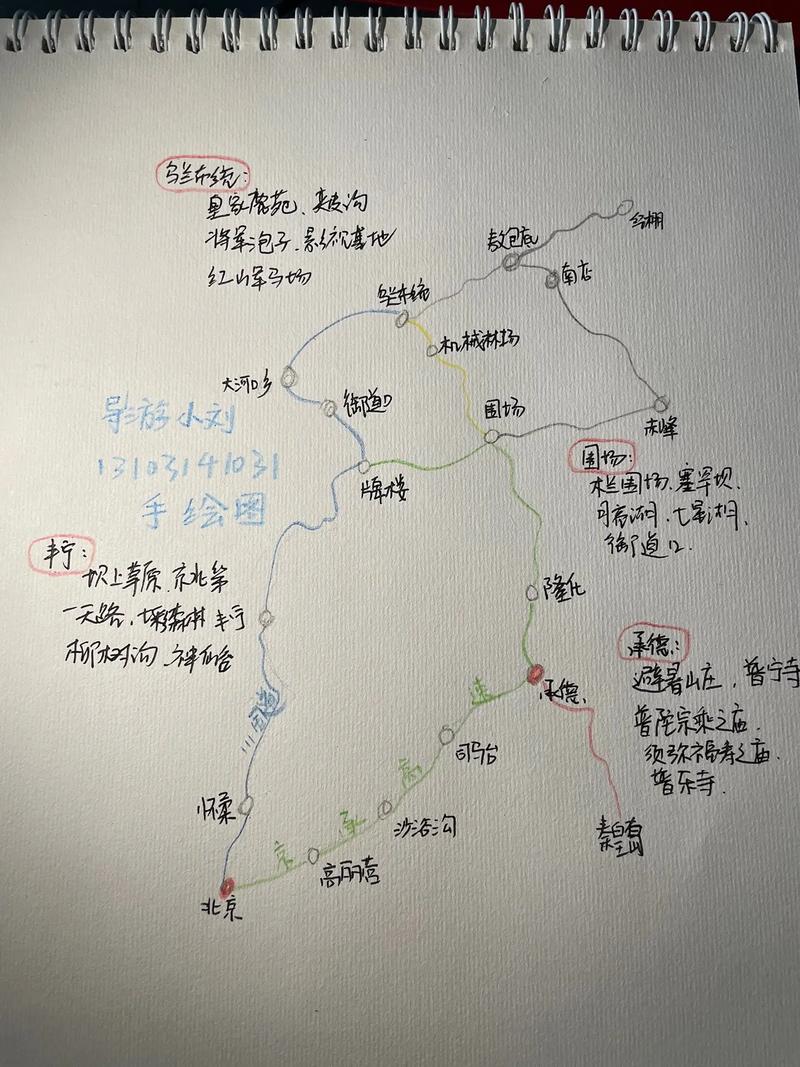 乌兰布统:
皇家鹿苑、夹皮沟
将军泡子、影视基地
红山军马场
经棚
敖包底
南店
乌兰布统
机械林场
大河口乡
御道口
围场
赤峰
牌楼
导游小刘
13103141031
手绘图
围场:
木兰围场、塞罕坝、
月亮湖、七星湖、
御道口.
丰宁:
坝上草原、京北第
一天路、喇嘛森林 丰宁
柳树沟、神仙谷
隆化
承德:
避暑山庄,普宁寺
普陀宗乘之庙、
须弥福寿之庙、
普乐寺.
承德
111国道
京承高速
司马台
怀柔
沙峪沟
高丽营
北京
秦皇岛